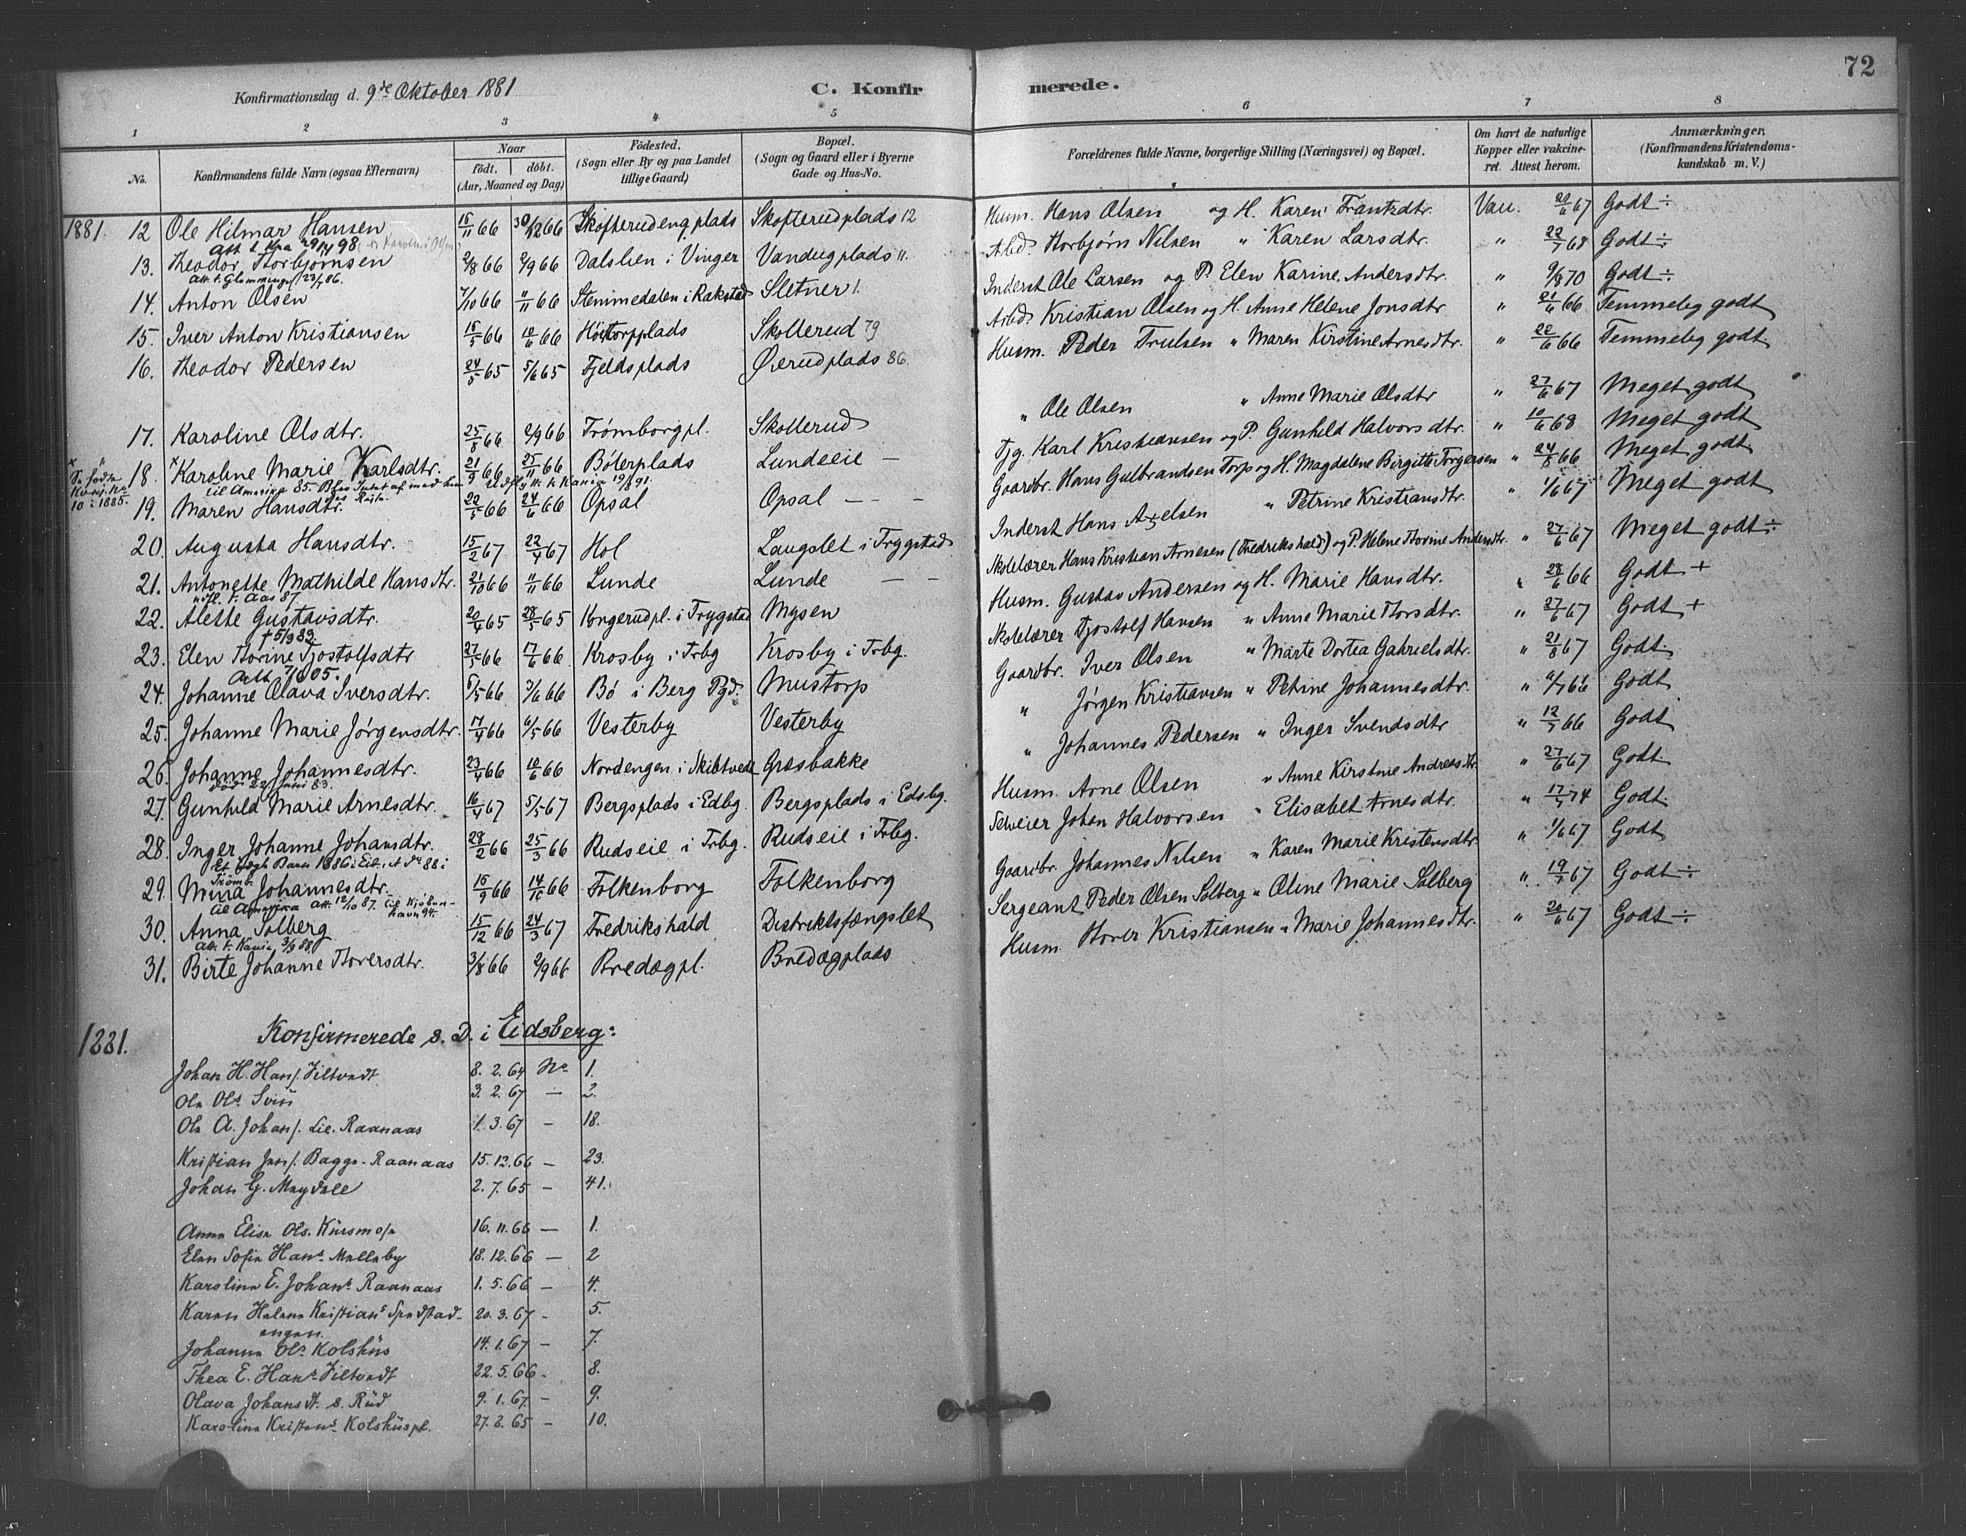 72
Konfirmationsdag d. 9de Oktober 1881
C. Konfirmerede.
1 2 3 4 5 6 7 8
No. Konfirmandens fulde Navn (ogsaa Efternavn) Naar født. døbt. (Aar, Maaned og Dag) Fødested. (Sogn eller By og paa Landet tillige Gaard) Bopæl. (Sogn og Gaard eller i Byerne Gade og Hus-No. Forældrenes fulde Navne, borgerlige Stilling (Næringsvei) og Bopæl. Om havt de naturlige Kopper eller vakcineret. Attest herom. Anmærkninger, (Konfirmandens Kristendomskundskab m. V.)
1881. 12 Ole Hilmar Hansen 15/11 66 30/12 66 Skofterudengplads Skofterudplads 12 Husm. Hans Olsen og H. Karen Frantzdtr. Vac. 20/6 67 Godt ÷
Att t. Kra 29/4 98
13. Theodor Thorbjørnsen 2/8 66 2/9 66 Dalslien i Vinger Vandugplads 11. Arbd. Thorbjørn Nilsen " Karen Larsdtr. " 22/7 68 Godt ÷
Att. t. Glemminge 23/1 06.
14. Anton Olsen 7/10 66 11/11 66 Stemmedalen i Rakstad Sletner 1. Inderst Ole Larsen og P. Elen Karine Andersdtr " 9/8 70 Godt ÷
15. Iver Anton Kristiansen 15/5 66 10/6 66 Høitorpplads Skollerud 79 Arbd. Kristian Olsen og H. Anne Helene Jonsdtr " 21/6 66 Temmelig godt
16. Theodor Pedersen 24/5 65 5/6 65 Fjeldsplads Ørerudplads 86. Husm. Peder Trulsen " Maren Kirstine Arnesdtr. " 20/6 66 Temmelig godt
17. Karoline Olsdtr. 25/8 66 2/9 66 Trømborgpl. Skollerud " Ole Olsen " Anne Marie Olsdtr " 27/6 67 Meget godt
18. Karoline Marie Karlsdtr. 21/9 66 25/11 66 Bølerplads Lundeeie — Tjg. Karl Kristiansen og P. Gunhild Halvorsdtr. " 10/6 68 Meget godt
Se født Konf. No 10 i 1885.
til Amerika 85.
19. Maren Hansdtr. 22/5 66 24/6 66 Opsal Opsal — — Gaardbr. Hans Gulbrandsen Torp og H. Magdelene Birgitte Torgersen " 24/8 66 Meget godt
20. Augusta Hansdtr. 15/2 67 22/4 67 Hol Laugslet i Trygstad Inderst Hans Axelsen " Petrine Kristiansdtr. " 1/6 67 Meget godt
21. Antonette Mathilde Hansdtr. 21/10 66 11/11 66 Lunde Lunde — — Skolelærer Hans Kristian Arnesen (Fredrikshald) og P. Helene Thorine Andersdtr. " 27/6 67 Meget godt ÷
utfl. t. Aas 87
22. Alette Gustavsdtr. 20/4 65 28/5 65 Kongerudpl. i Trygstad Mysen Husm. Gustav Andersen og H. Marie Hansdtr. " 28/6 66 Godt +
† 5/9 82.
23. Elen Thorine Tjostolfsdtr 27/5 66 17/6 66 Krosby i Trbg Krosby i Trbg. Skolelærer Tjostolf Hansen " Anne Marie Thorsdtr. " 27/6 67 Godt +
24. Johanne Olava Iversdtr. 6/5 66 3/6 66 Bø i Berg Pgd. Mustorp Gaardbr. Iver Olsen " Marte Dortea Gabrielsdtr. " 21/8 67 Godt.
25. Johanne Marie Jørgensdtr. 17/4 66 6/5 66 Vesterby Vesterby " Jørgen Kristiansen " Petrine Johannesdtr. " 6/7 66 Godt
26. Johanne Johannesdtr. 23/4 66 10/6 66 Nordengen i Skibtvedt Græsbakke " Johannes Pedersen " Inger Svendsdtr " 12/7 66 Godt
død 22 Juni 83.
27. Gunhild Marie Arnesdtr. 16/4 67 5/5 67 Bergsplads i Edbg. Bergsplads i Edsbg. Husm. Arne Olsen " Anne Kirstine Andreasdtr. " 27/6 67 Godt.
28. Inger Johanne Johansdtr. 28/2 66 25/3 66 Rudseie i Trbg. Rudseie i Trbg. Selveier Johan Halvorsen " Elisabet Arnesdtr. " 17/7 74 Godt.
Trømb.
29. Mina Johannesdtr. 15/9 66 14/10 66 Folkenborg Folkenborg Gaardbr. Johannes Nilsen " Karen Marie Kristensdtr. " 1/6 67 Godt
til Amerika Att. 12/10 87. til Kjøbenhavn 94.
30. Anna Solberg 15/12 66 24/3 67 Fredrikshald Distriktsfængslet Sergeant Peder Olsen Solberg " Oline Marie Solberg " 19/7 67 Godt ÷
Att. t. Kania 3/9 88
31. Birte Johanne Thoversdtr. 3/8 66 2/9 66 Bredægpl. Bredægplads Husm. Thover Kristiansen " Marie Johannesdtr. " 20/6 67 Godt ÷
1881. Konfirmerede s. D. i Eidsberg:
Johan H. Hans. Tiltvedt 8. 2. 64 No 1.
Ole Ols. Svin 3. 2. 67 — 2.
Ole A. Johans. Lie. Raanaas 1. 3. 67 — 18.
Kristian Jens. Bagge. Raanaas 15. 12. 66 — 23.
Johan G. Mysdale 2. 7. 65 — 41.
Anna Elise Ols. Kirsmose 16. 11. 66 — 1.
Elen Sofie Hans. Melleby 18. 12. 66 — 2
Karolina E. Johans. Raanaas 1. 5. 66 — 4.
Karen Helene Kristians. Spydstadengen. 20. 3. 67 — 5.
Johanna Ols. Kolshus 14. 1. 67 — 7.
Thea E. Hans. Tiltvedt 22. 5. 66 — 8.
Olava Johansdt. s. Rud 9. 1. 67 — 9.
Karolina Kristens. Kolshuspl. 27. 2. 65 — 10.